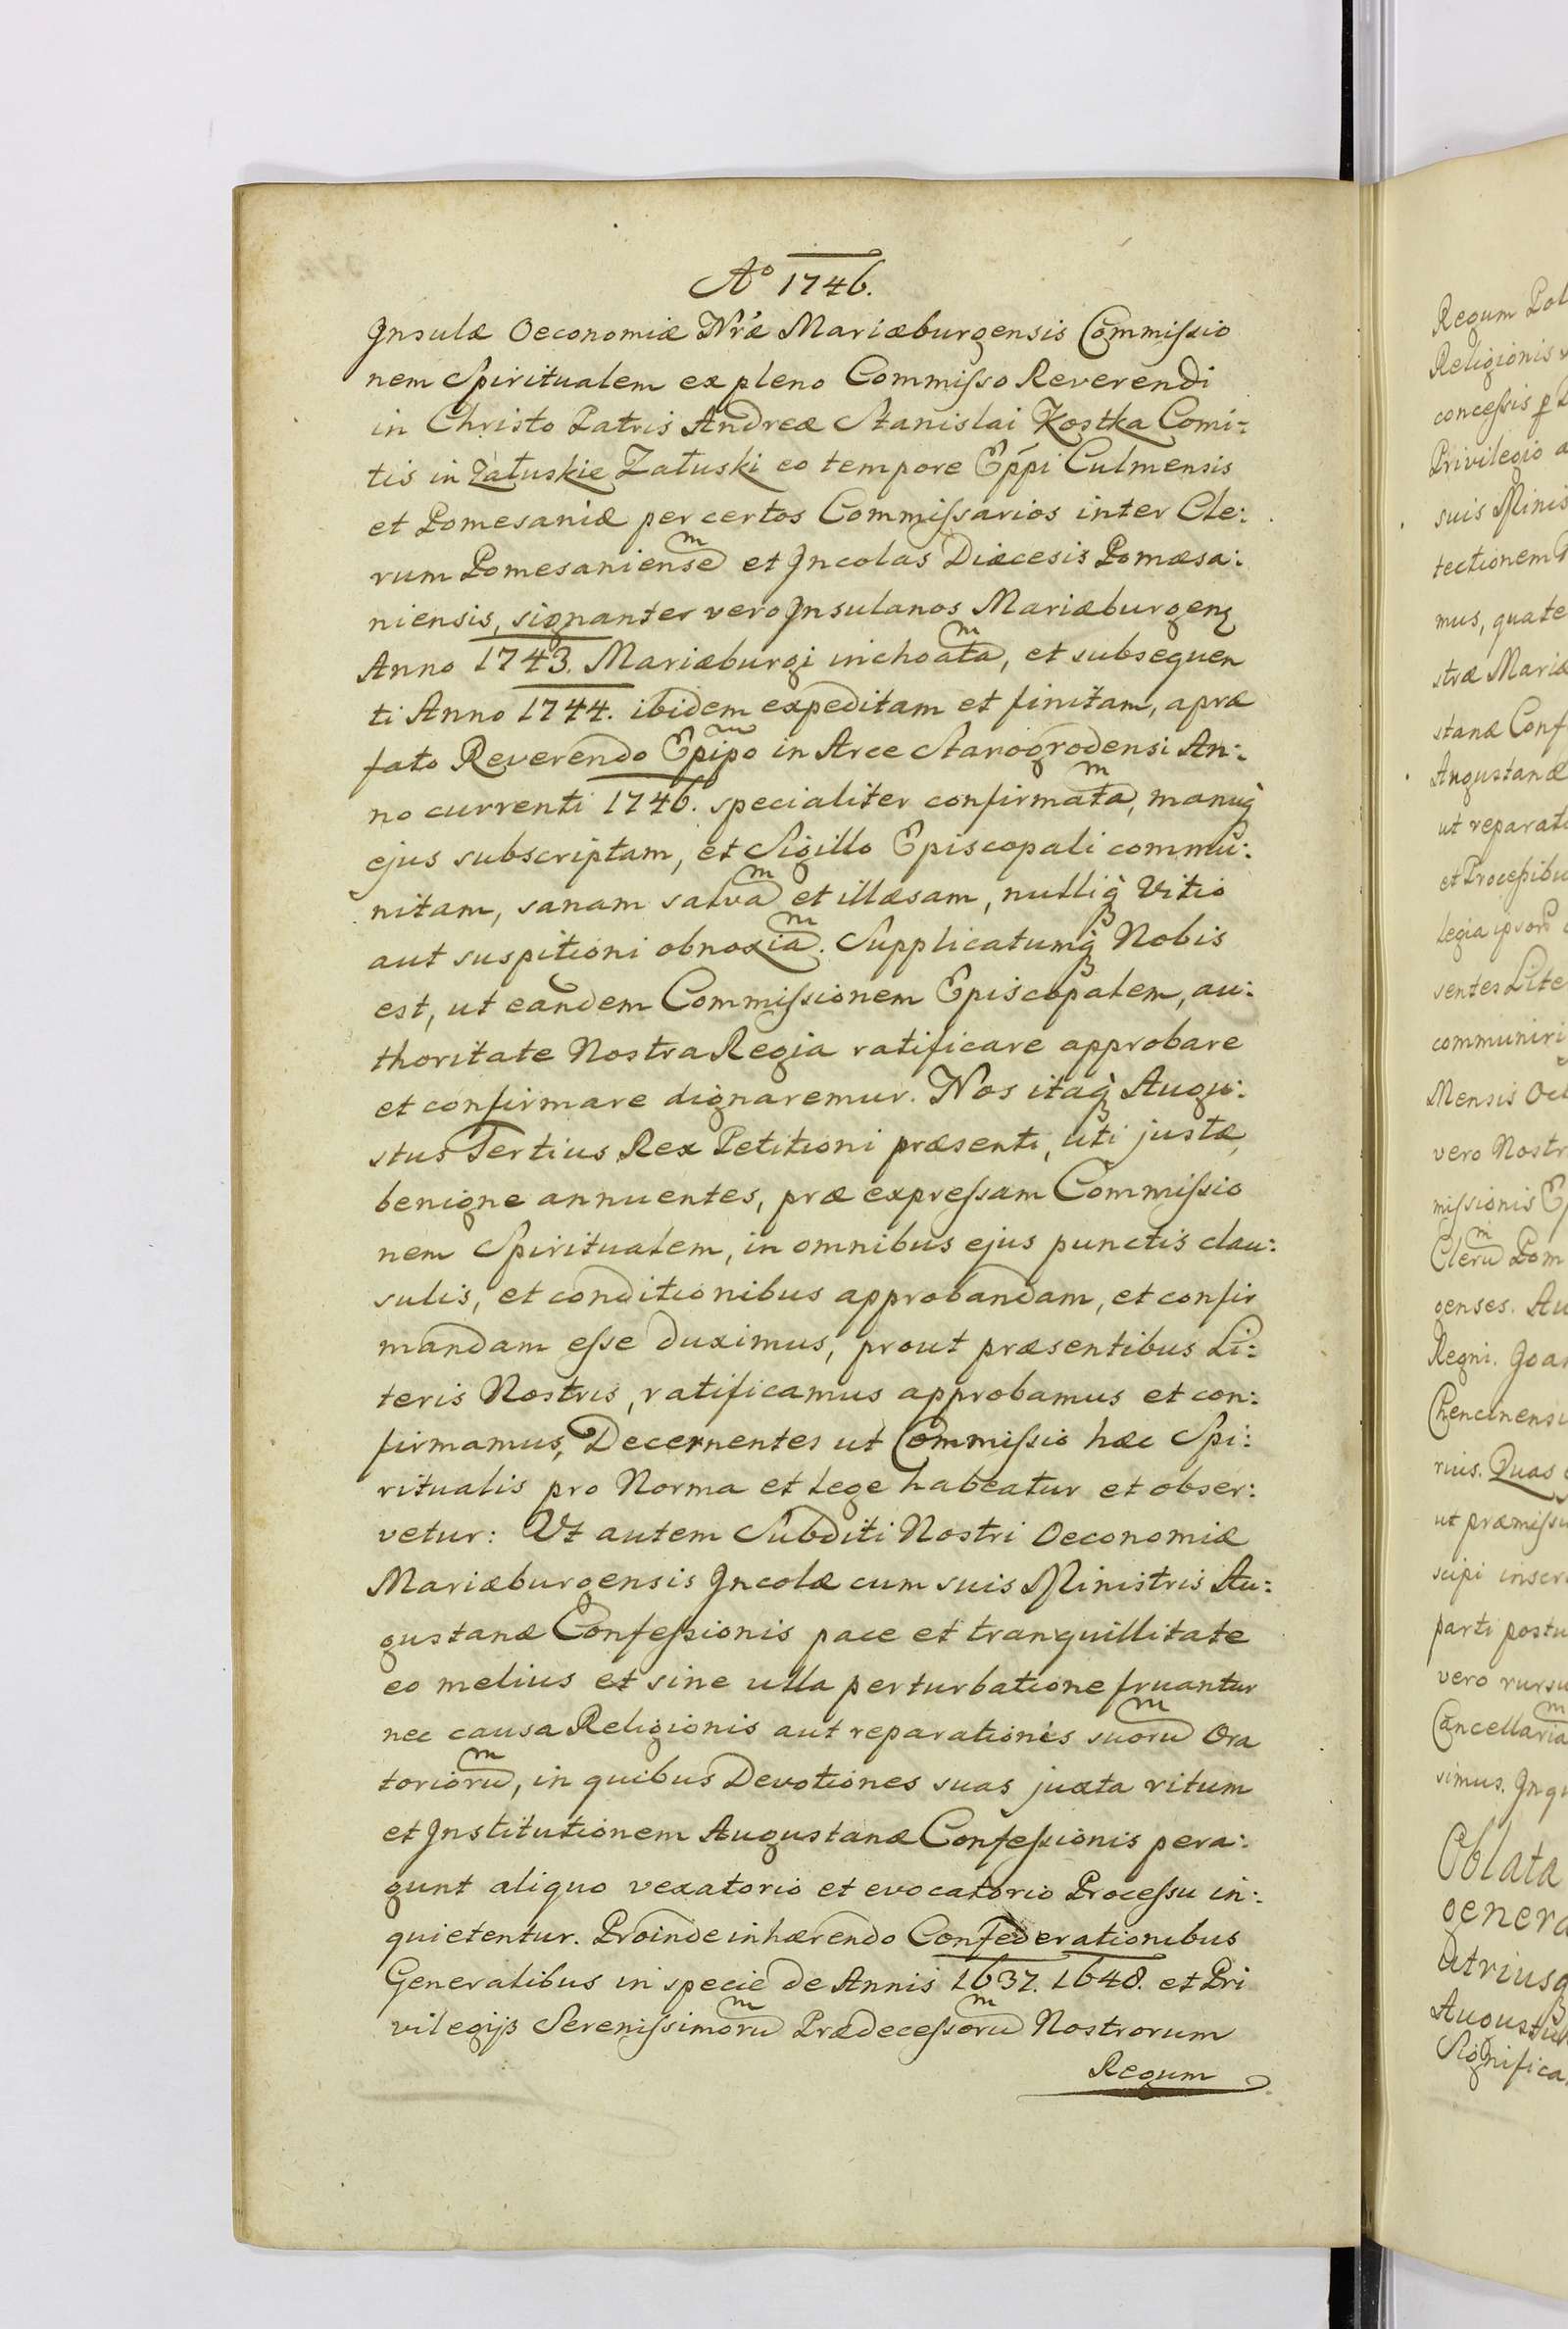 Aº 1746.
Insulæ Oeconomiæ Nr̃æ Mariæburgensis Commiſsio
nem Spiritualem ex pleno Commiſso Reverendi
in Christo Patris Andreæ Stanislai Kostka Comi:
tis in Załuskie Załuski eo tempore Ep̃pi Culmensis
et Pomesaniæ per certos Commiſsarios inter Cle:
rum Pomesaniensem̃ et Incolas Diæcesis Pomæsa:
niensis, signanter vero Insulanos Mariæburgenȝ
Anno 1743. Mariæburgi inchoatam̃, et subsequen
ti Anno 1744. ibidem expeditam et finitam, a præ
fato Reverendo Ep̃ipo in Arce Starogrodensi An:
no currenti 1746. specialiter confirmatam̃, manuq̃
ejus subscriptam, et Sigillo Episcopali commu:
nitam, sanam salvam̃ et illæsam, nulliq̃ Vitio
aut suspitioni obnoxiam̃. Supplicatumq̃ Nobis
est, ut eandem Commiſsionem Episcopalem, au:
thoritate Nostra Regia ratificare approbare
et confirmare dignaremur. Nos itaq̃ Augu:
stus Tertius Rex Petitioni præsenti, uti justæ,
benigne annuentes, præ expreſsam Commiſsio
nem Spiritualem, in omnibus ejus punctis clau:
sulis, et conditionibus approbandam, et confir
mandam eſse duximus, prout præsentibus Li:
teris Nostris, ratificamus approbamus et con:
firmamus, Decernentes ut Commiſsio hæc Spi:
ritualis pro Norma et lege habeatur et obser:
vetur: Ut autem Subditi Nostri Oeconomiæ
Mariæburgensis Incolæ cum suis Ministris Au:
gustanæ Confeſsionis pace et tranquillitate
eo melius et sine ulla perturbatione fruantur
nec causa Religionis aut reparationis suorum̃ Ora
toriorum̃, in quibus Devotiones suas juxta ritum
et Institutionem Augustanæ Confeſsionis pera:
gunt aliquo vexatorio et evocatorio Proceſsu in:
quietentur. Proinde inhærendo Confederationibus
Generalibus in specie de Annis 1637. 1648. et Pri
vilegijs Sereniſsimorum̃ Prædeceſsorum̃ Nostrorum
Regum
Regum Pol
Religionis
conceſsis
Privilegio
suis Minis
tectionem
mus, quate
stræ Mariæ
stanæ Conf
Augustanæ
ut reparati
et Proceſsibu
legia ipsor
sentes Lite
communiri
Mensis Oct
vero Nostr
miſsionis Ep
Clerum̃ Pom
genses. Au
Regni. Joan
Chencinensi
rius. Quas
ut præmiſsu
scipi inser
parti postu
vero rursu
Cancellariam̃
simus. In qu
Oblata
genera
Utriusq
Augustu
Significa